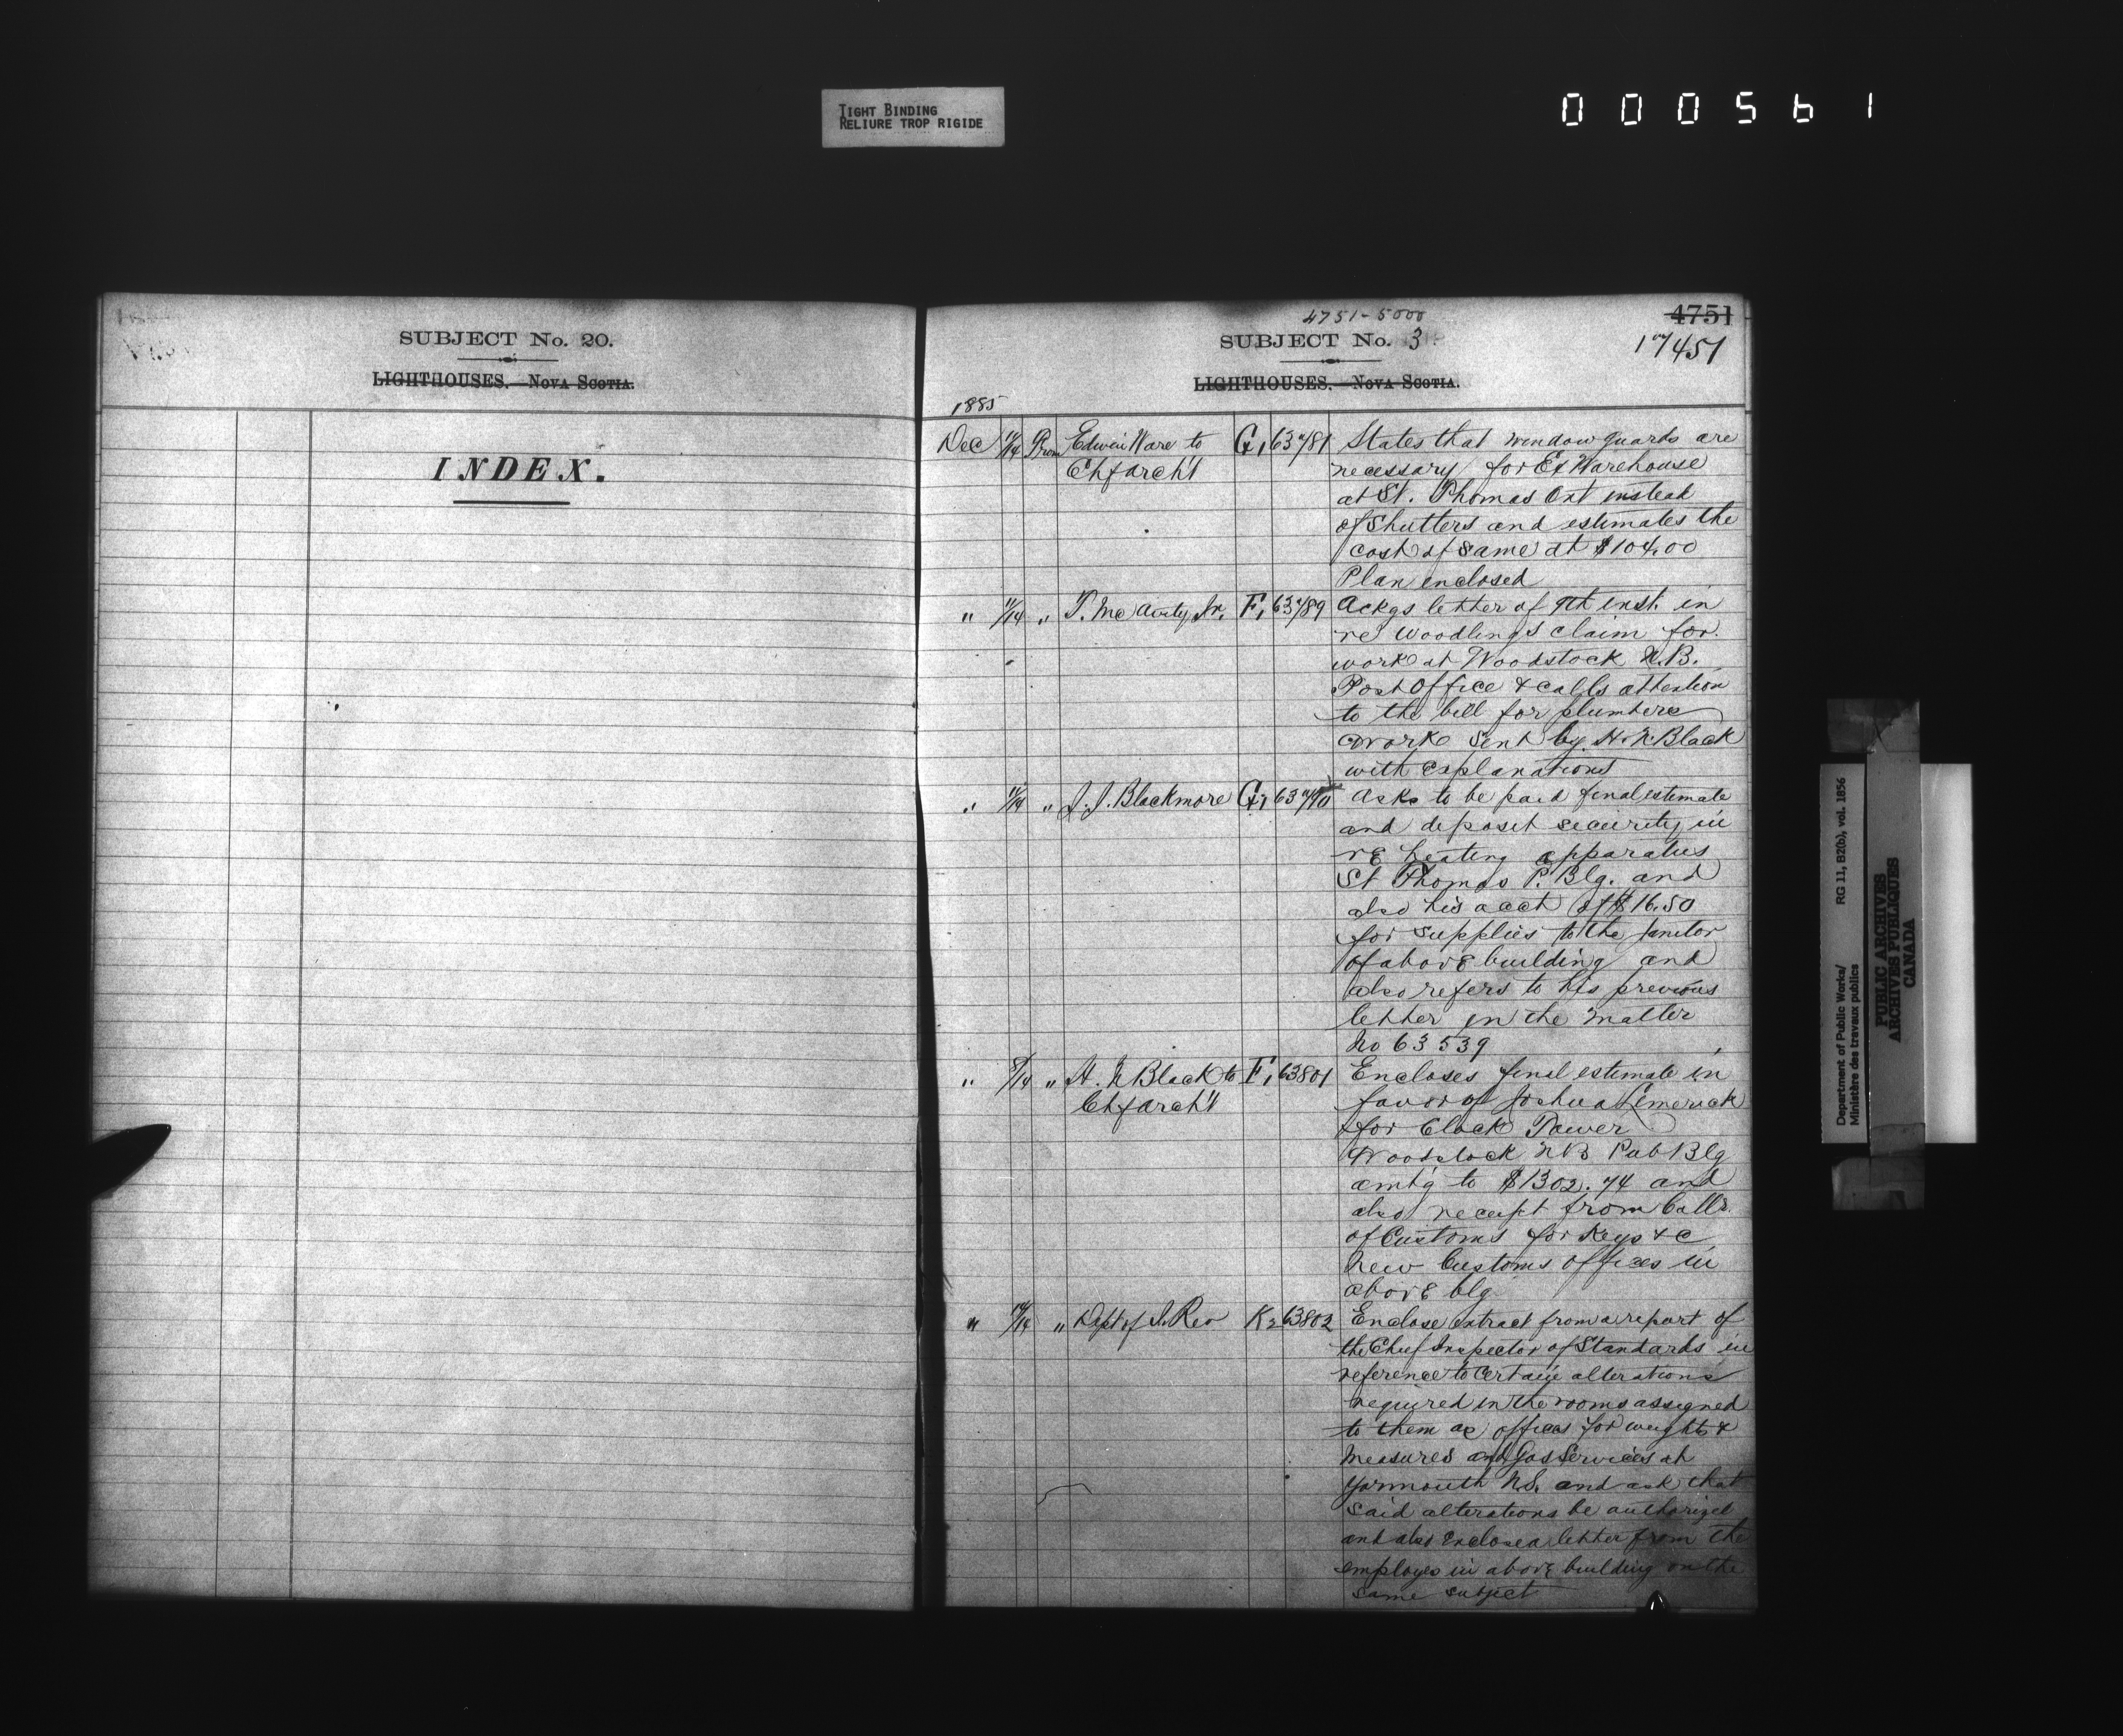 TIGHT BINDING
RELIURE TROP RIGIDE
000561
SUBJECT No. 20.
LIGHTHOUSES.—NOVA SCOTIA.
INDEX.
4751-5000
4751
SUBJECT No. 3
17451
LIGHTHOUSES.—NOVA SCOTIA.
1885
Dec 11/14 From Edwin Ware to G1 63781 States that window guards are
Chf archt necessary for Ex Warehouse
at St. Thomas Ont instead
of Shutters and estimates the
cost of same at $104.00
Plan enclosed
" 11/14 " T. McAvity Jr. F1 63789 Ackgs letter of 9th inst. in
re Woodlings claim for
work at Woodstock N.B.
Post Office & calls attention
to the bill for plumbers
work sent by H. N. Black
with explanations
" 11/14 " J. J. Blackmore G1 63790 Asks to be paid final estimate
and deposit security in
re heating apparatus
St Thomas P. Blg. and
also his acct of $16.50
for supplies to the janitor
of above building and
also refers to his previous
letter in the matter
No 63539
" 8/14 " H. N Black to F1 63801 Encloses final estimate in
Chf archt favor of Joshua Limerick
for Clock Tower
Woodstock NB Pub Blg
amtg to $1302.74 and
also receipt from Collr.
of Customs for Keys &c
New Customs offices in
above blg
" 14 " Dept of I. Rev K2 63802 Enclose extract from a report of
the Chief Inspector of Standards in
reference to certain alterations
required in the rooms assigned
to them as offices for weights &
Measures and Gas Services at
Yarmouth NS. and ask that
said alterations be authorized
and also enclose a letter from the
employes in above building on the
same subject
Department of Public Works/ RG 11, B2(b), vol. 1856
Ministère des travaux publics
PUBLIC ARCHIVES
ARCHIVES PUBLIQUES
CANADA